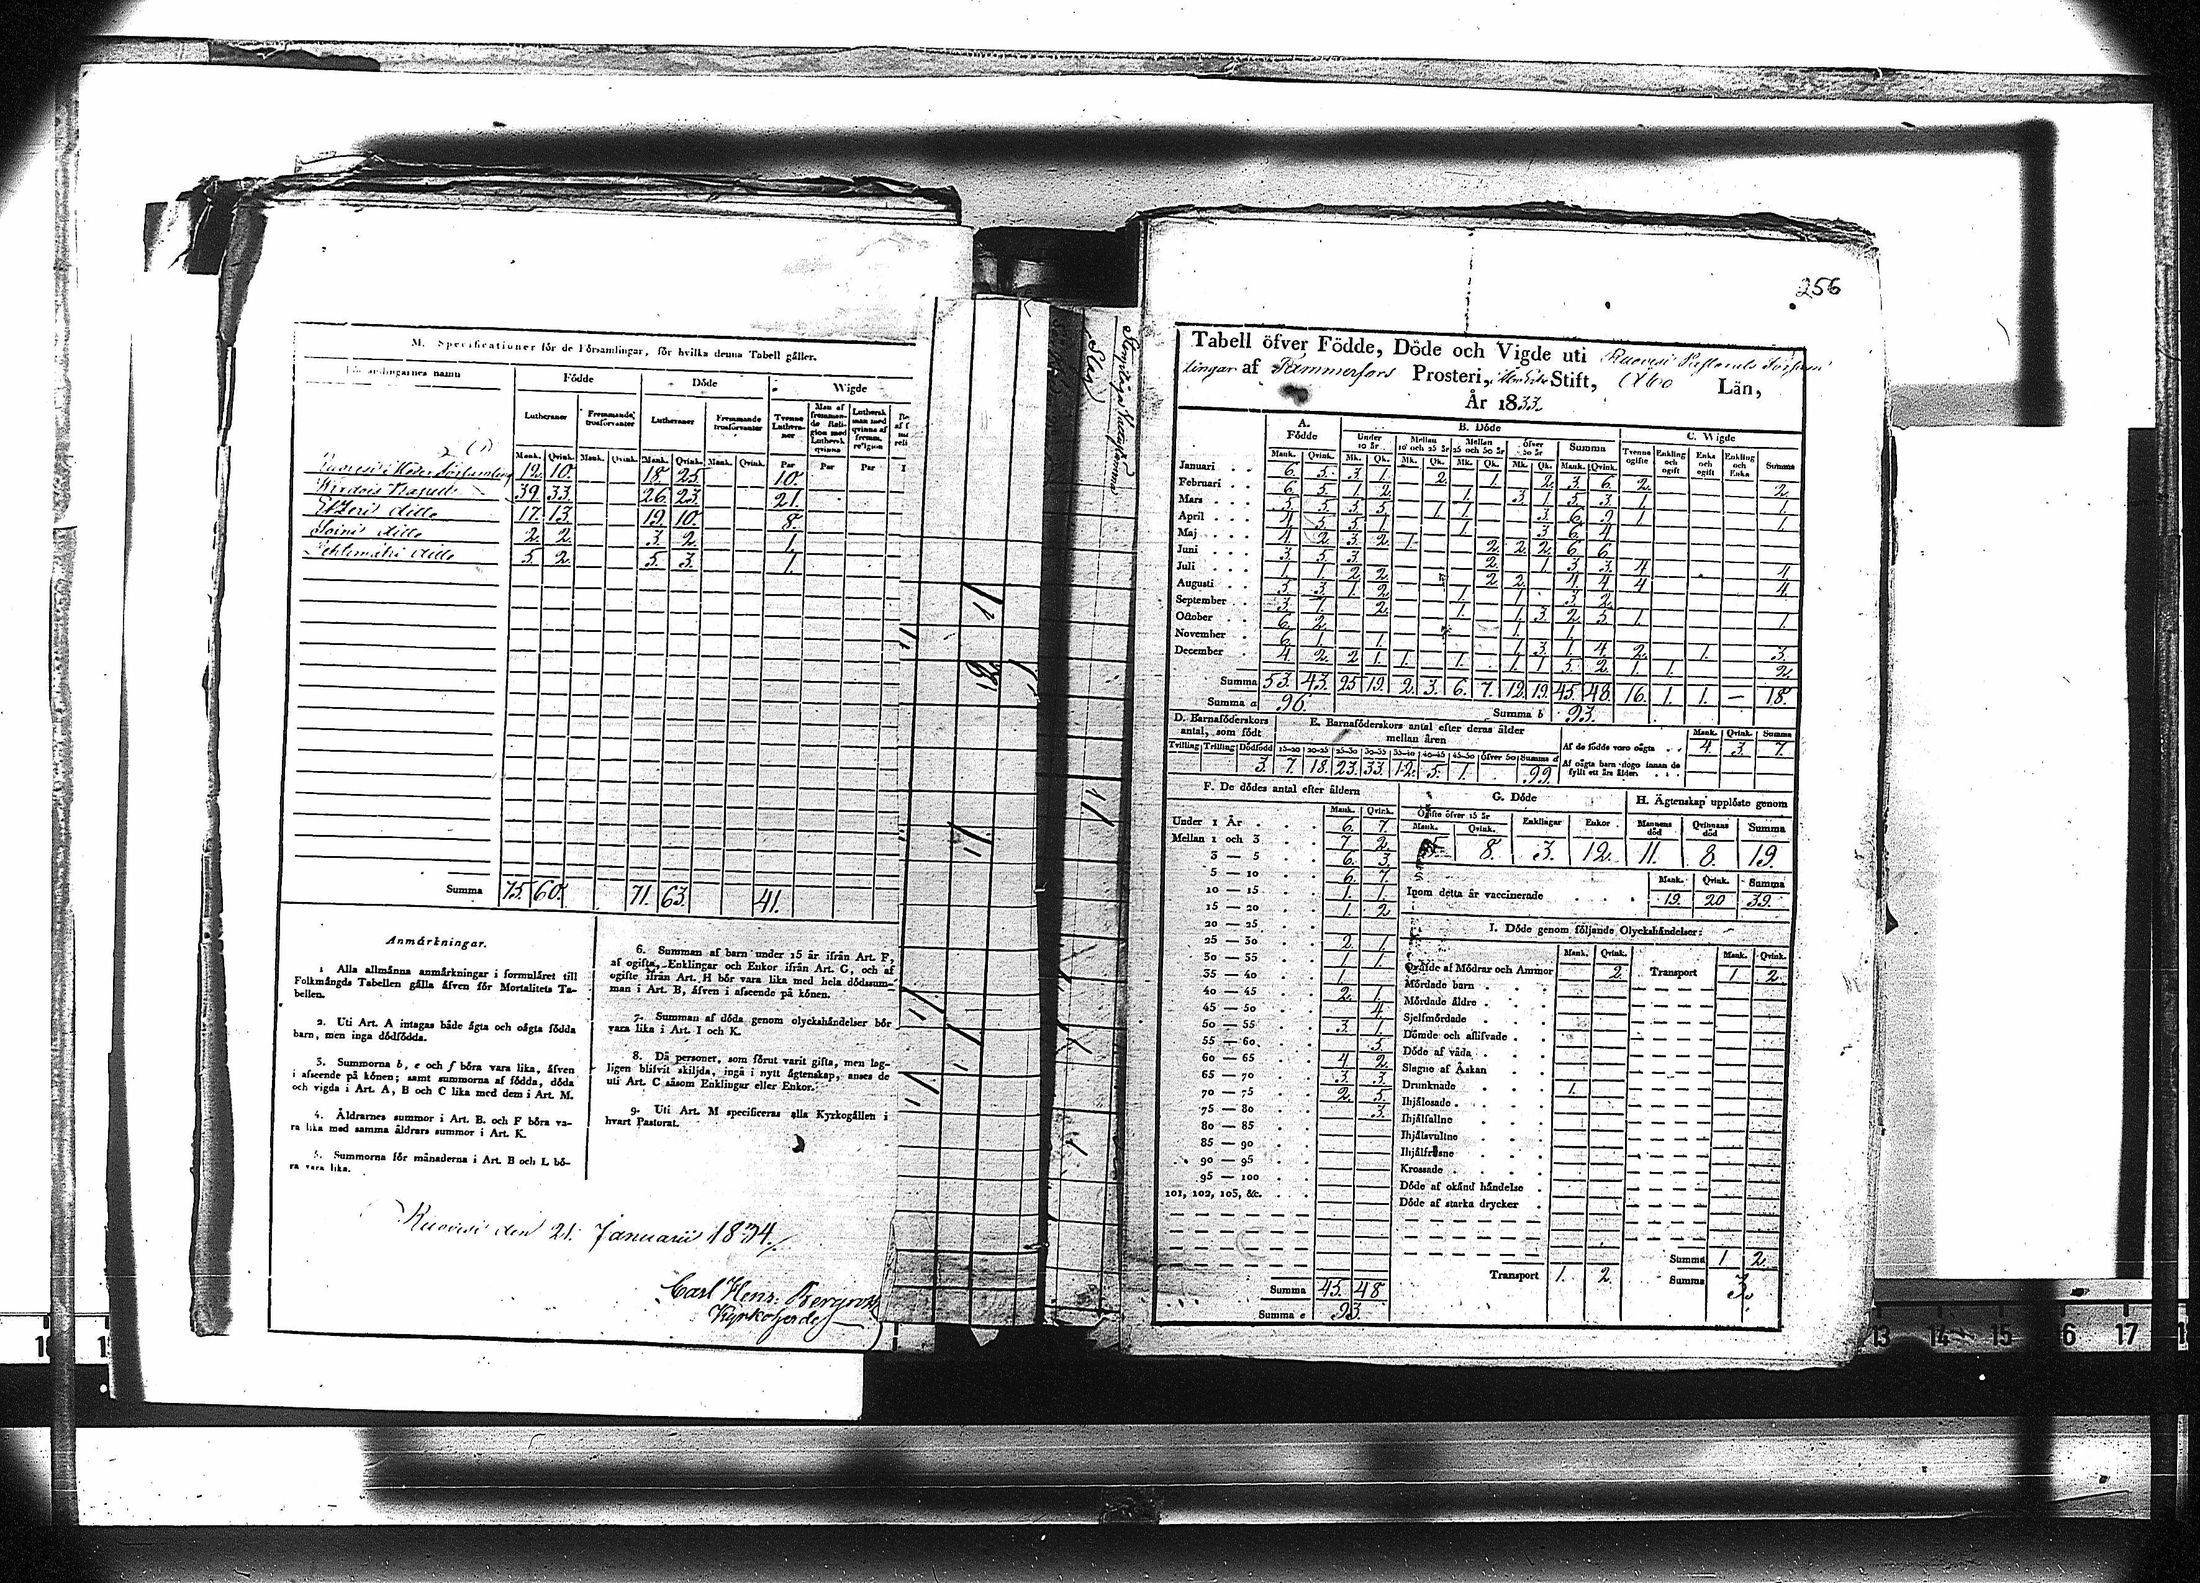 256
M. Specificationer för de Församlingar, för hvilka denna Tabell gäller.
Församlingarnes namn | Födde | Döde | Wigde
Lutheraner | Fremmande trosförvanter | Lutheraner | Fremmande trosförvanter | Tvenne Lutheraner | Man af fremmande Religion med Luthersk qvinna | Luthersk man med qvinna af fremm. religion
Mank. | Qvink. | Mank. | Qvink. | Mank. | Qvink. | Mank. | Qvink. | Par | Par | Par
Ruovesi Moder Församling | 19. | 10. | 18. | 25. | 10.
Wirdois Kapell | 39. | 33. | 26. | 23. | 21.
Etzeri ditto | 17. | 13. | 19. | 10. | 8.
Soini ditto | 2. | 2. | 3. | 2. | 1.
Lehtimäki ditto | 5. | 2. | 5. | 3. | 1.
Summa | 75. | 60. | 71. | 63. | 41.
Anmärkningar.
1. Alla allmänna anmärkningar i formuläret till
Folkmängds Tabellen gälla äfven för Mortalitets Ta-
bellen.
2. Uti Art. A intagas både ägta och oägta födda
barn, men inga dödfödda.
3. Summorna b, e och f böra vara lika, äfven
i afseende på könen; samt summorna af födda, döda
och vigda i Art. A, B och C lika med dem i Art. M.
4. Åldrarnes summor i Art. B. och F böra va-
ra lika med samma åldrars summor i Art. K.
5. Summorna för månaderna i Art. B och L bö-
ra vara lika.
6. Summan af barn under 15 år ifrån Art. F,
af ogifta, Enklingar och Enkor ifrån Art. G, och af
ogifte ifrån Art. H bör vara lika med hela dödssum-
man i Art. B, äfven i afseende på könen.
7. Summan af döda genom olyckshändelser bör
vara lika i Art. I och K.
8. Då personer, som förut varit gifta, men lag-
ligen blifvit skiljda, ingå i nytt ägtenskap, anses de
uti Art. C såsom Enklingar eller Enkor.
9. Uti Art. M specificeras alla Kyrkogällen i
hvart Pastorat.
Ruovesi den 21. Januarii 1834.
Carl Henr.
Kyrkoherde
Tabell öfver Födde, Döde och Vigde uti Ruovesi Pastorats Församl
lingar af Tammerfors Prosteri, Stift, Åbo Län,
År 1833.
A. Födde | B. Döde | C. Wigde
Under 10 år | Mellan 10 och 25 år | Mellan 25 och 50 år | öfver 50 år | Summa | Tvenne ogifte | Enkling och ogift | Enka och ogift | Enkling och Enka | Summa
Mank. | Qvink. | Mk. | Qk. | Mk. | Qk. | Mk. | Qk. | Mk. | Qk. | Mank. | Qvink.
Januari | 6. | 5. | 3. | 1. | 2. | 1. | 2. | 3. | 6. | 2. | 2.
Februari | 6. | 5. | 1. | 2. | 1. | 3. | 1. | 5. | 3. | 1. | 1.
Mars | 5. | 5. | 5. | 5. | 1. | 1. | 3. | 6. | 9. | 1. | 1.
April | 4. | 5. | 5. | 1. | 1. | 3. | 6. | 4.
Maj | 4. | 2. | 3. | 2. | 1. | 2. | 2. | 2. | 6. | 6.
Juni | 3. | 5. | 3. | 2. | 1. | 3. | 3. | 4. | 4.
Juli | 1. | 1. | 2. | 2. | 2. | 2. | 4. | 4. | 4. | 4.
Augusti | 5. | 3. | 1. | 2. | 1. | 1. | 3. | 2.
September | 3. | 7. | 2. | 1. | 1. | 3. | 2. | 5. | 1. | 1.
October | 6. | 2. | 1. | 1.
November | 6. | 1. | 1. | 1. | 3. | 1. | 4. | 2. | 1. | 3.
December | 4. | 2. | 2. | 1. | 1. | 1. | 1. | 1. | 5. | 2. | 1. | 1. | 2.
Summa | 53. | 43. | 25. | 19. | 2. | 3. | 6. | 7. | 12. | 19. | 45. | 48. | 16. | 1. | 1. | — | 18.
Summa a | 96. | Summa b | 93.
D. Barnaföderskors antal, som födt
E. Barnaföderskors antal efter deras ålder mellan åren
Tvilling | Trilling | Dödfödd | 15—20 | 20—25 | 25—30 | 30—35 | 35—40 | 40—45 | 45—50 | öfver 50 | Summa d
3. | 7. | 18. | 23. | 33. | 12. | 5. | 1. | 99.
Mank. | Qvink. | Summa
Af de födde voro oägta | 4. | 3. | 7.
Af oägta barn dogo innan de fyllt ett års ålder
F. De dödes antal efter åldern
Mank. | Qvink.
Under 1 År | 6. | 7.
Mellan 1 och 3 | 7. | 2.
3 — 5 | 6. | 3.
5 — 10 | 6. | 7.
10 — 15 | 1. | 1.
15 — 20 | 1. | 2
20 — 25
25 — 30 | 2. | 1.
30 — 35 | 1. | 1.
35 — 40 | 1.
40 — 45 | 2. | 1.
45 — 50 | 4.
50 — 55 | 3. | 1.
55 — 60 | 5.
60 — 65 | 4. | 2.
65 — 70 | 3. | 3.
70 — 75 | 2. | 5.
75 — 80 | 3.
80 — 85
85 — 90
90 — 95
95 — 100
101, 102, 103, &c.
Summa | 45. | 48.
Summa e | 93.
G. Döde
Ogifte öfver 15 år | Enklingar | Enkor
Mank. | Qvink.
8. | 3. | 12.
H. Ägtenskap upplöste genom
Mannens död | Qvinnans död | Summa
11. | 8. | 19.
Mank. | Qvink. | Summa
Inom detta år vaccinerade | 19. | 20 | 39.
I. Döde genom följande Olyckshändelser:
Mank. | Qvink. | Mank. | Qvink.
Qväfde af Mödrar och Ammor | 2. | Transport | 1 | 2.
Mördade barn
Mördade äldre
Sjelfmördade
Dömde och aflifvade
Döde af våda
Slagne af Åskan
Drunknade | 1.
Ihjälosade
Ihjälfallne
Ihjälsvultne
Ihjälfrusne
Krossade
Döde af okänd händelse
Döde af starka drycker
Transport | 1. | 2. | Summa | 1 | 2.
Summa | 3.
13 14 15 16 17